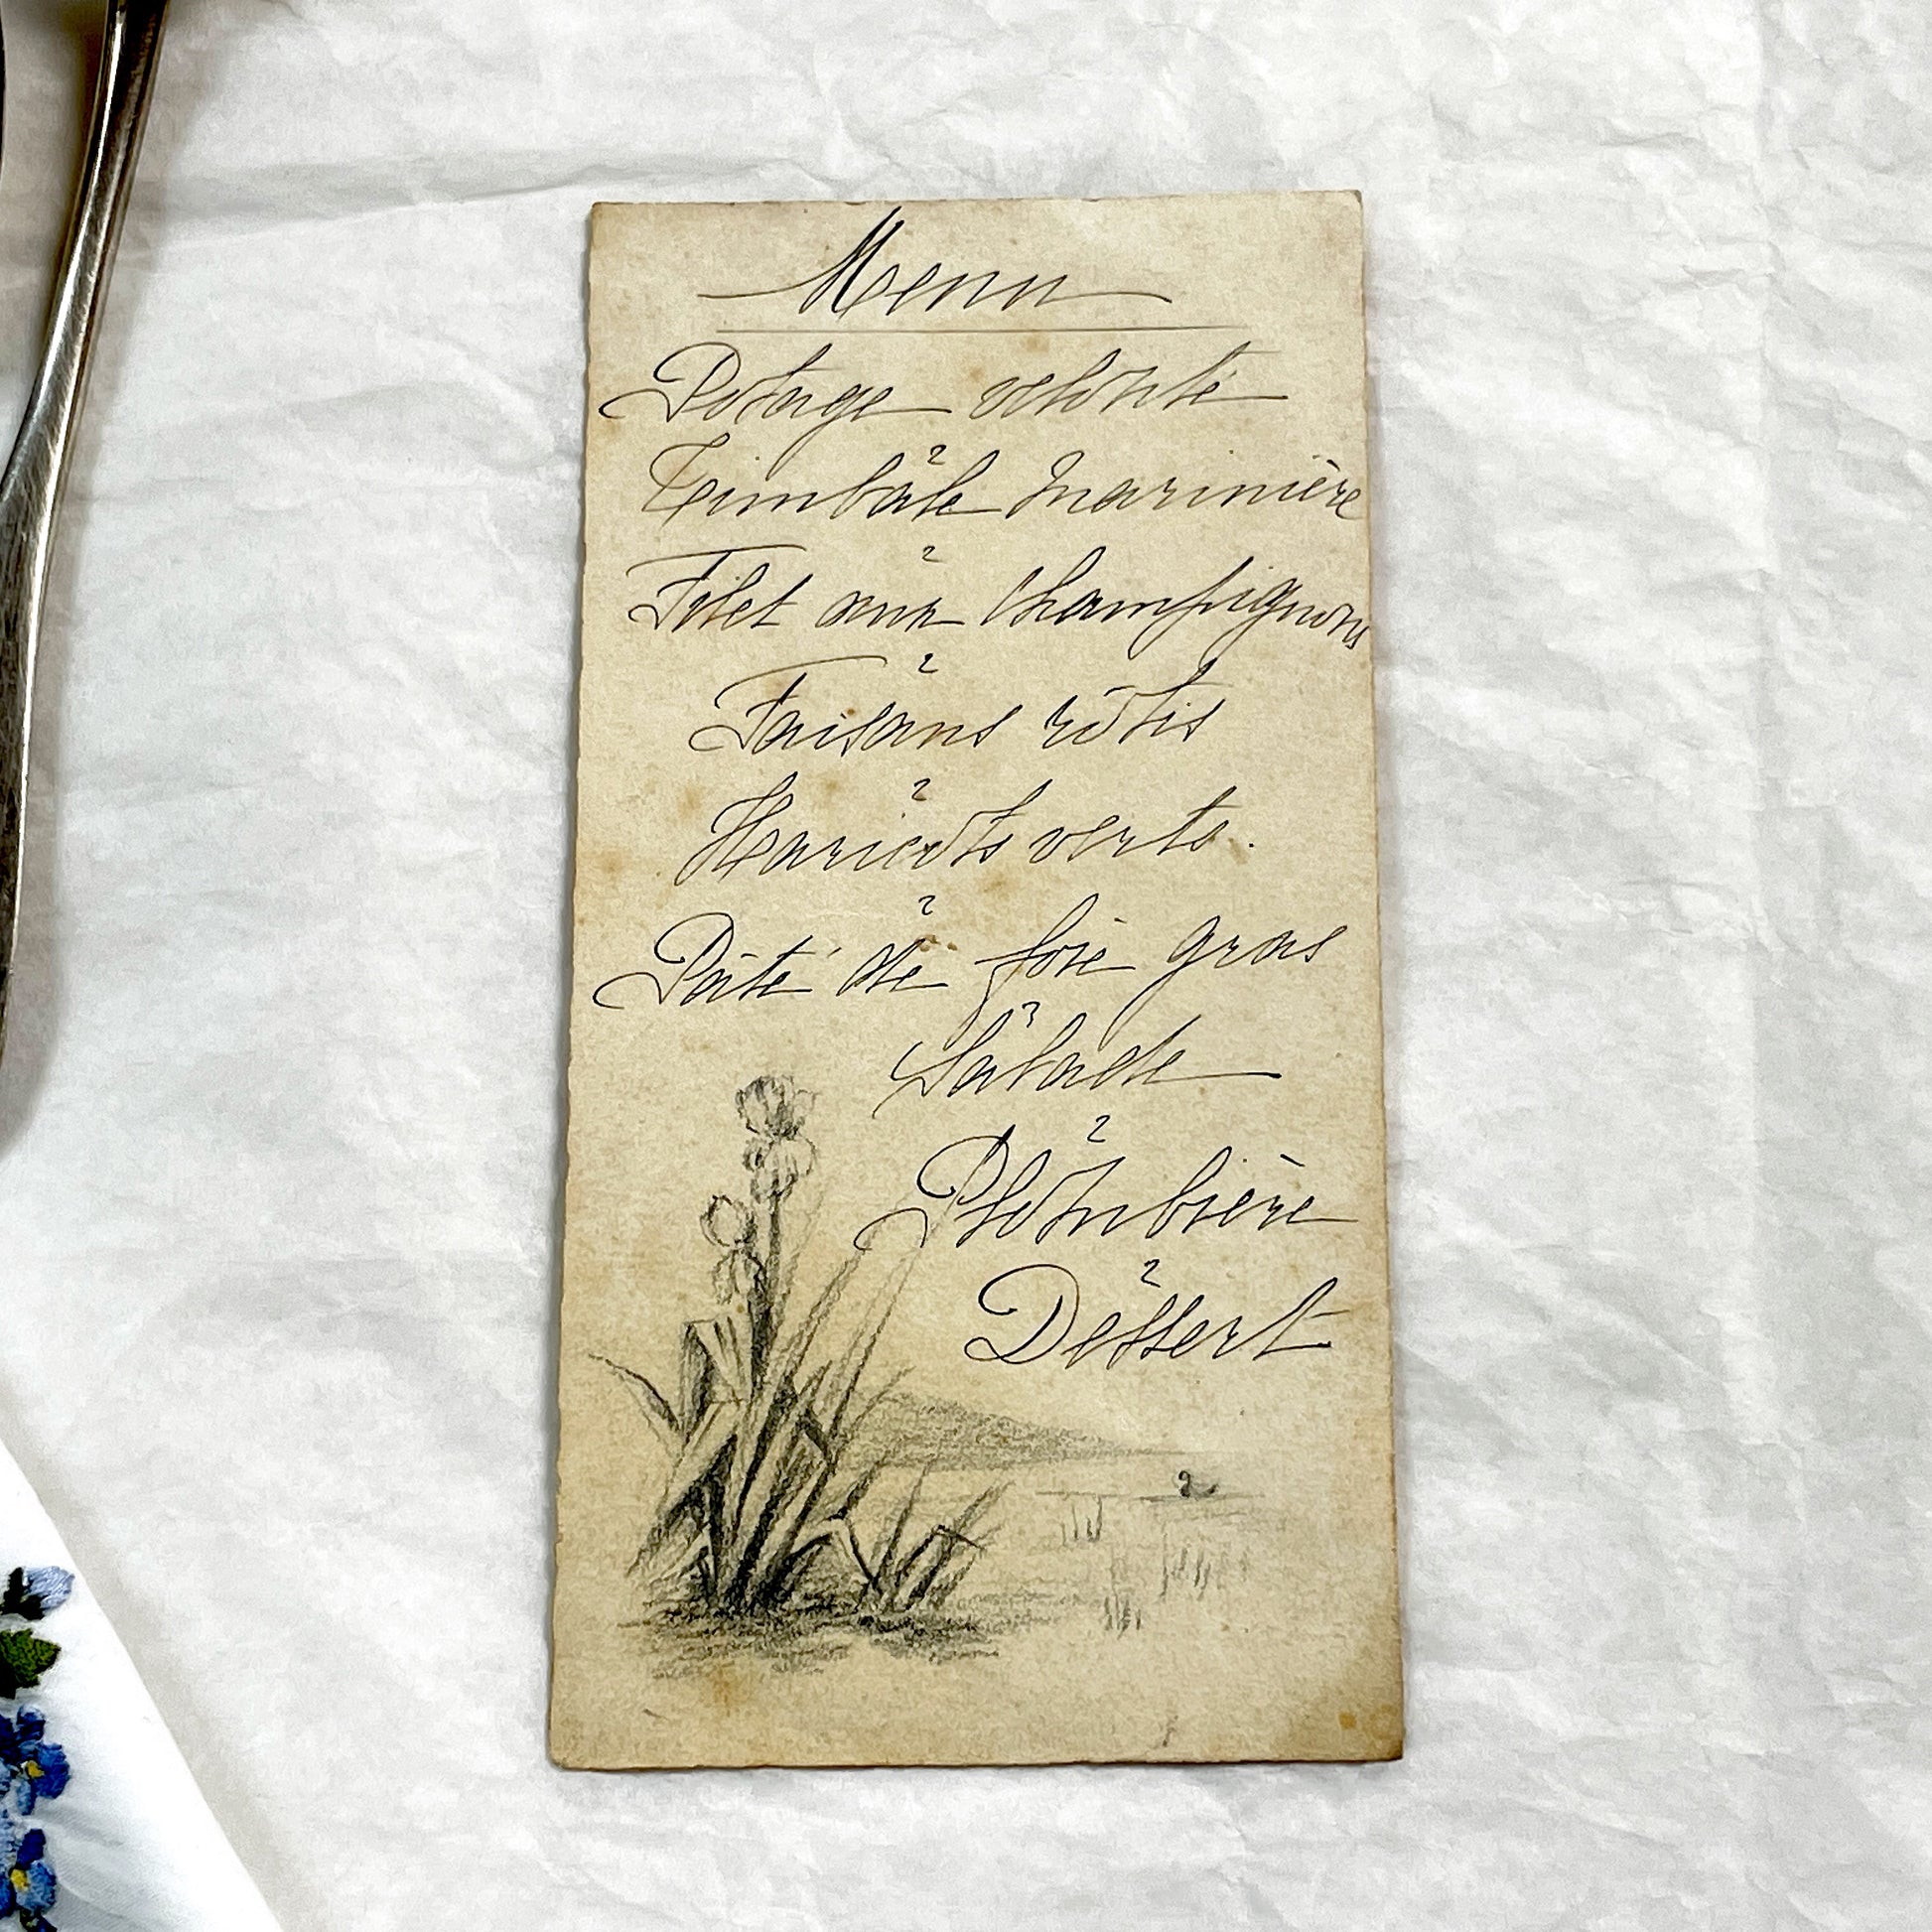 Menu
Potage velouté
Timbale Marinière
Filet aux Champignons
Faisans rôtis
Haricots verts.
Pâté de foie gras
Salade
Plombière
Dessert